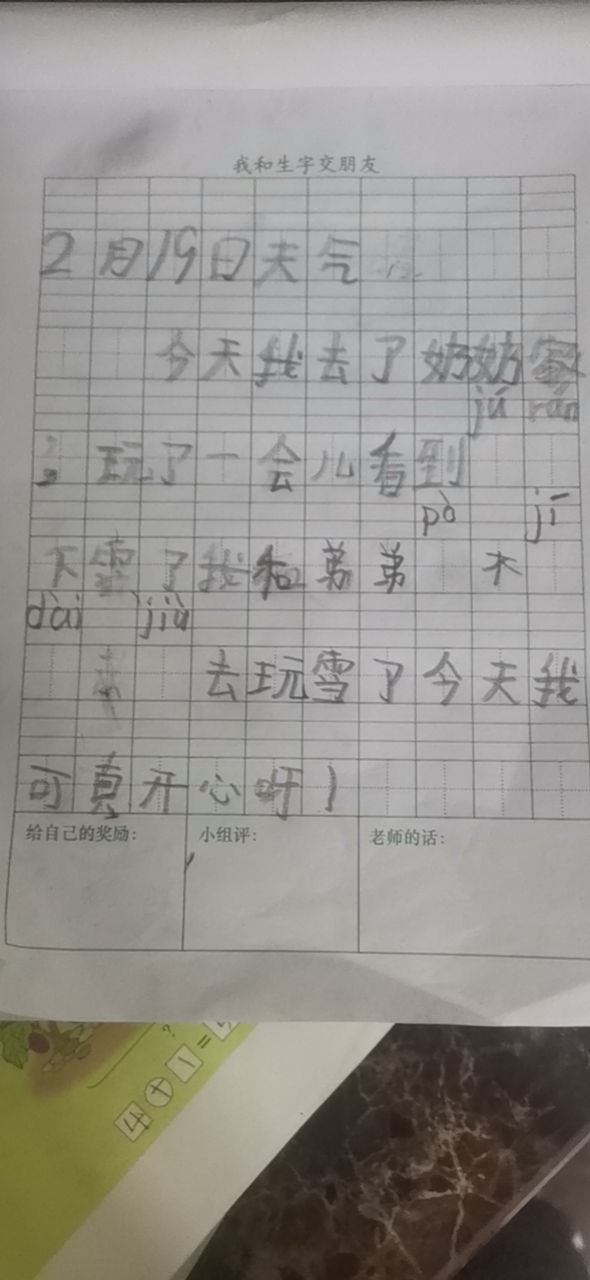 我和生字交朋友
2月19日天气
今天我去了奶奶家
jú rán
玩了一会儿看到
pò jí
下雪了我和弟弟 不
dài jiù
去玩雪了今天我
可真开心呀!
给自己的奖励: 小组评: 老师的话:
4+1=5